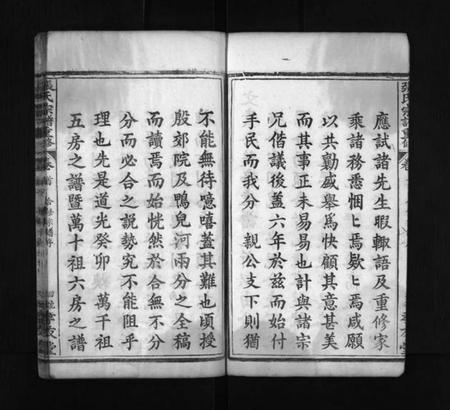 應試諸先生暇輙語及重修家
乘諸務悉悃匕焉歟匕焉咸願
以共勷盛舉爲快顧其意甚美
而其事正未易易也計與諸宗
兄偕議後蓋六年於兹而始付
手民而我分 親公支下則猶
不能無待噫嘻蓋其難也頃授
殷郊院及鴨兒河兩分之全稿
而讀焉而始恍然於合無不分
分而必合之說勢究不能阻乎
理也先是道光癸卯 萬千祖
五房之譜暨萬十祖六房之譜
張氏宗譜重修